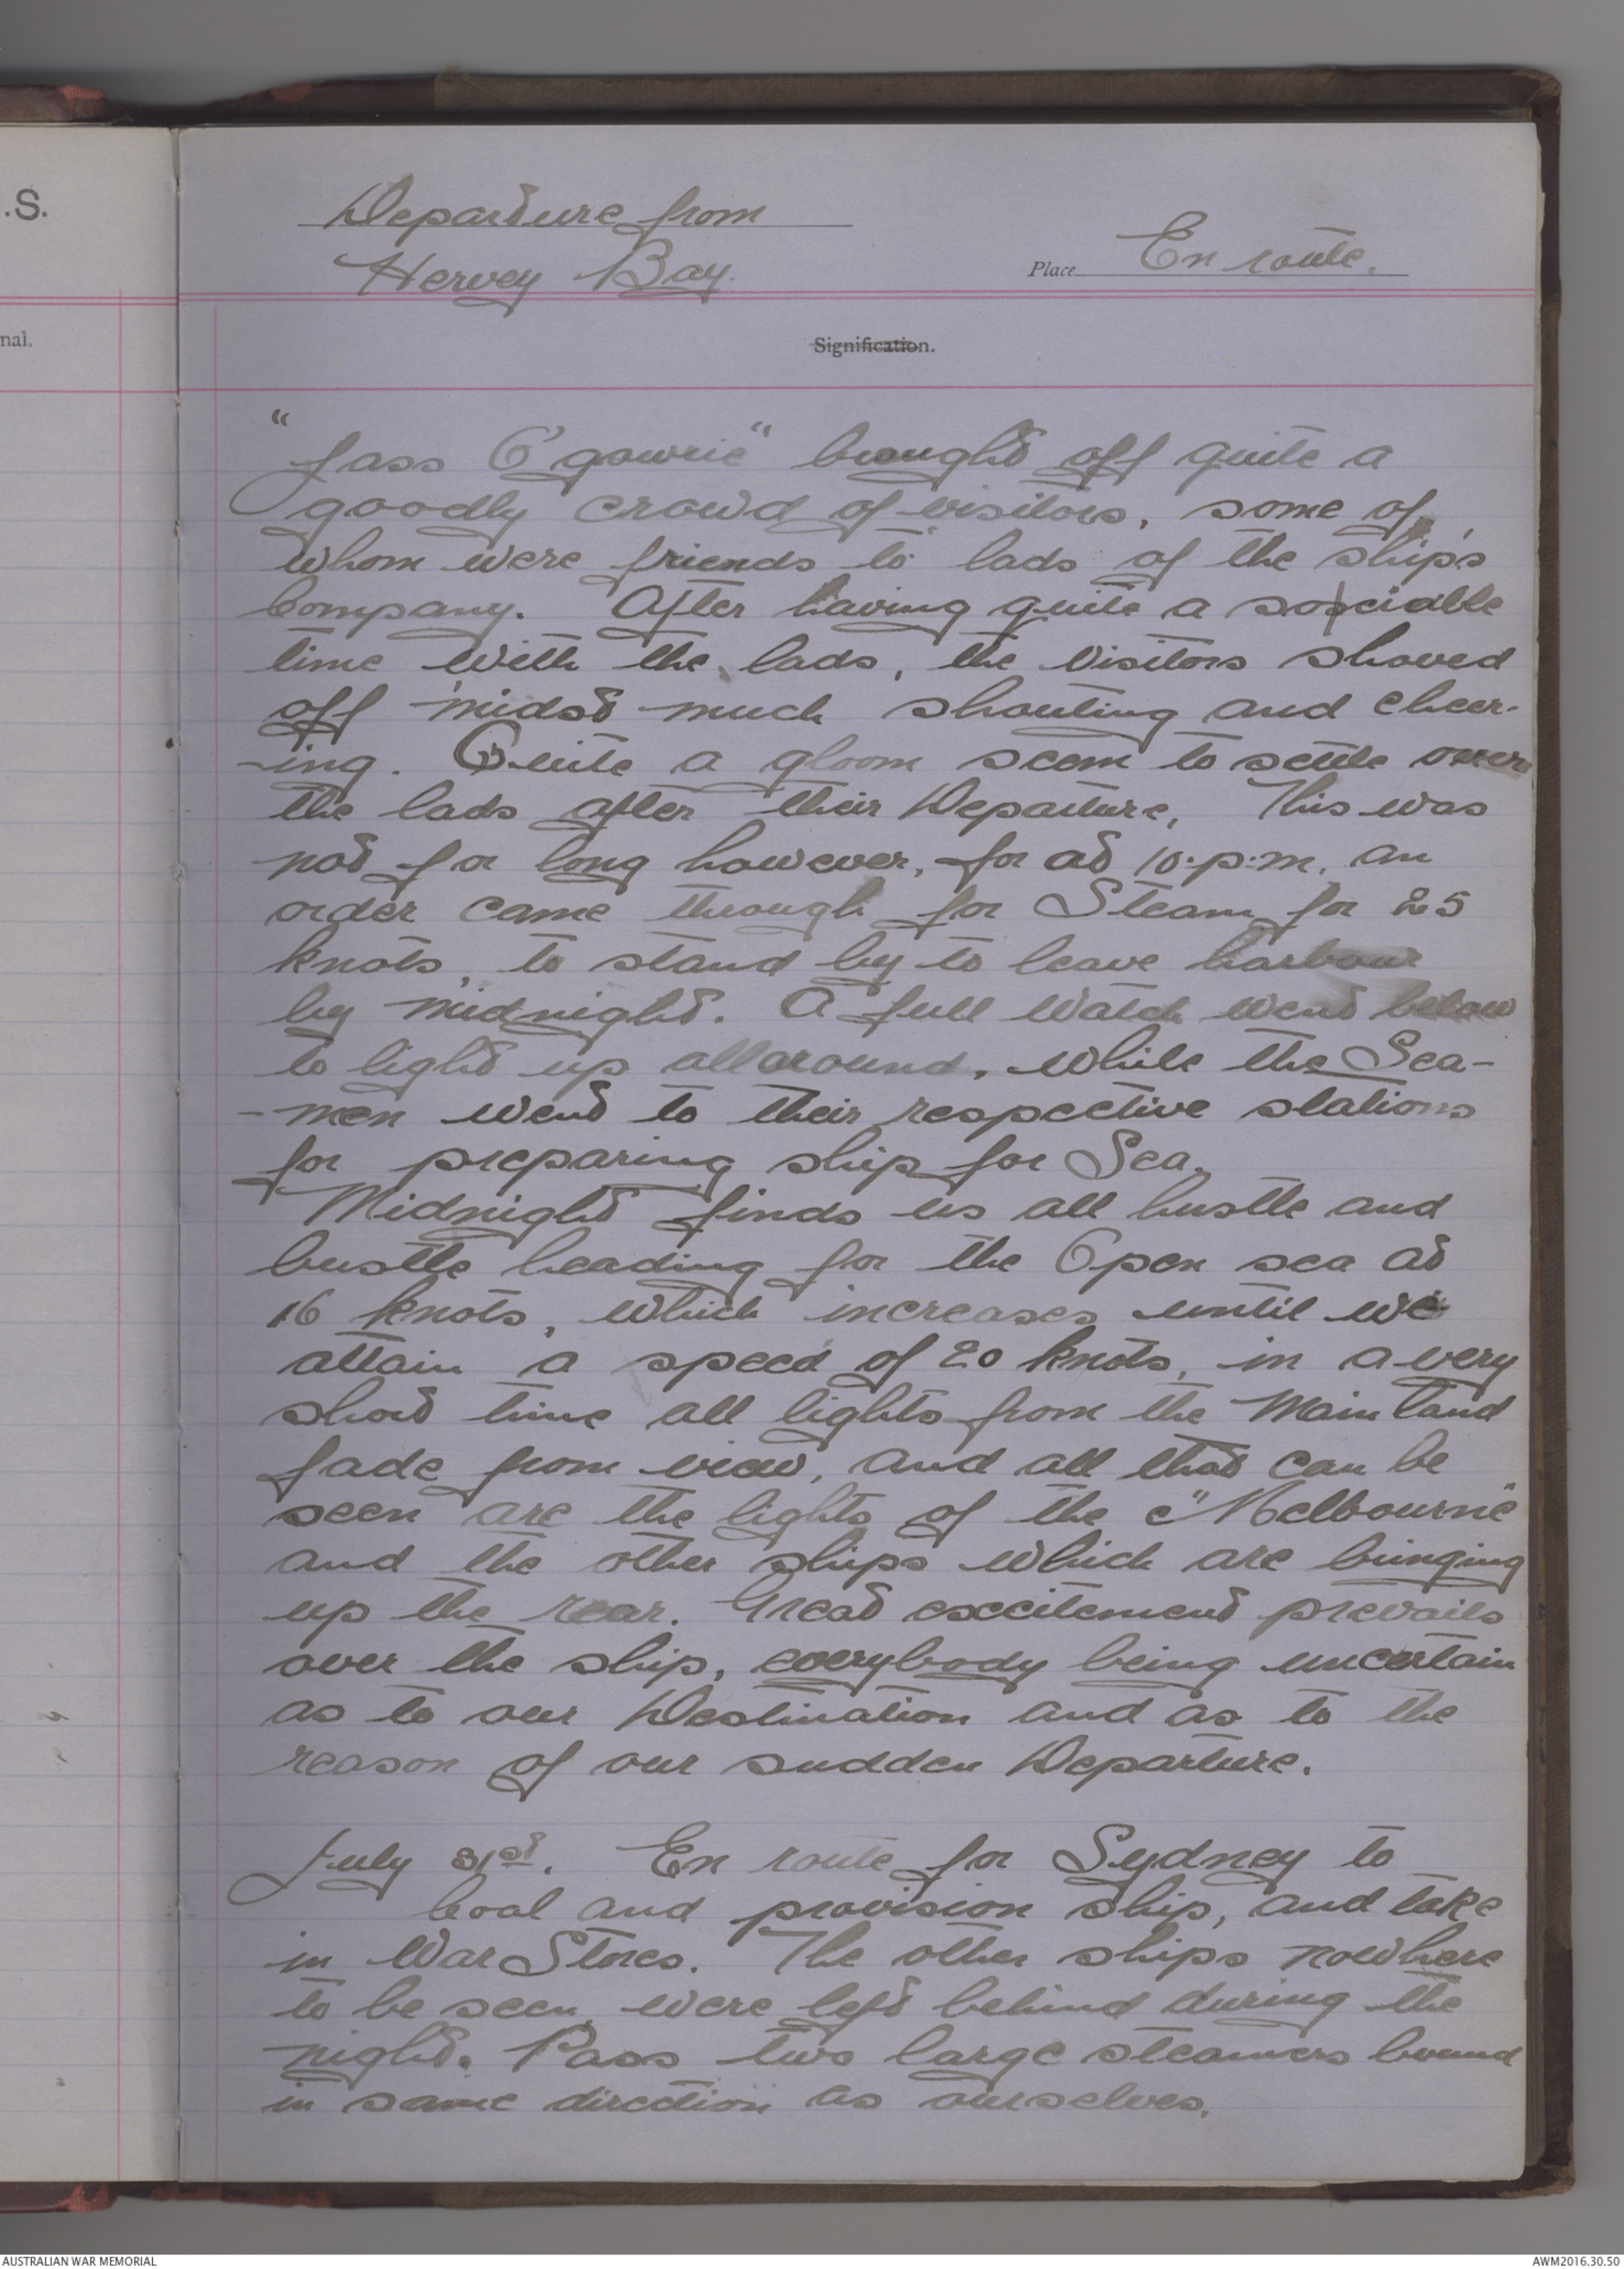 .S.
nal.
Departure from
Hervey Bay.
Place En route.
Signification.
"Jass O'gowrie" brought off quite a
goodly crowd of visitors, some of
whom were friends to lads of the ship's
Company. After having quite a sociable
time with the lads, the visitors shoved
off 'midst much shouting and cheer-
-ing. Quite a gloom seem to settle over
the lads after their Departure, This was
not for long however, for at 10.p.m. an
order came through for Steam for 25
knots, to stand by to leave harbour
by midnight. A full watch went below
to light up all around, while the Sea-
-men went to their respective stations
for preparing ship for Sea.
Midnight finds us all hustle and
bustle heading for the Open sea at
16 knots, which increases until we
attain a speed of 20 knots, in a very
short time all lights from the Main land
fade from view, and all that can be
seen are the lights of the "Melbourne"
and the other ships which are bringing
up the rear. Great excitement prevails
over the ship, everybody being uncertain
as to our Destination and as to the
reason of our sudden Departure.
July 31st. En route for Sydney to
Coal and provision ship, and take
in War Stores. The other ships nowhere
to be seen, were left behind during the
night. Pass two large steamers bound
in same direction as ourselves.
AUSTRALIAN WAR MEMORIAL
AWM2016.30.50